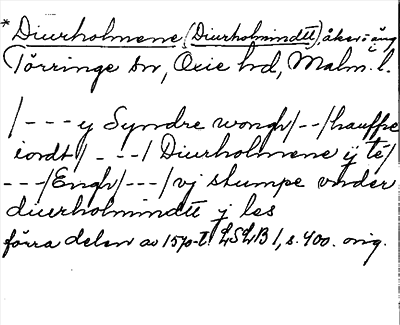 *Diurholmene (Diurholmindtt), åker o äng
Törringe sn, Oxie hd, Malm. l.
/---y Syndre wongh/--/hauffre
iordt/---/Diurholmene ÿ té/
---/Engh/---/vj stumpe vnder
diurholmindtt j les
förra delen av 1570-t. LSLB 1, s. 400. orig.